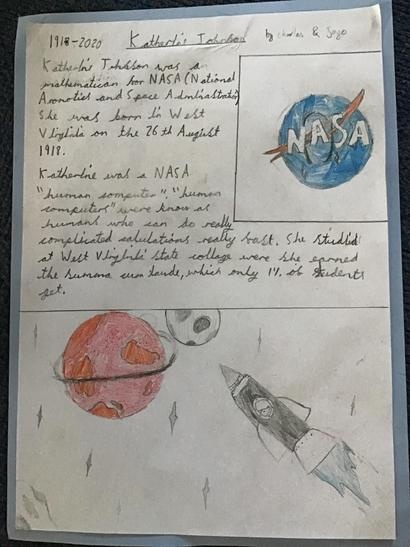 1918-2020 Katherine Johnson by charles & Sayo
Katherine Johnson was a
mathematician for NASA (National
Aronotics and Space Administration
She was born in West
Virginia on the 26th August
1918.
NASA
Katherine was a NASA
"human somputer". "human
somputers" were know as
humans who can do really
complicated salulations really bast. She studid
at West Virginia state collage were she earned
the summa sum laude, which only 1% of students
get.